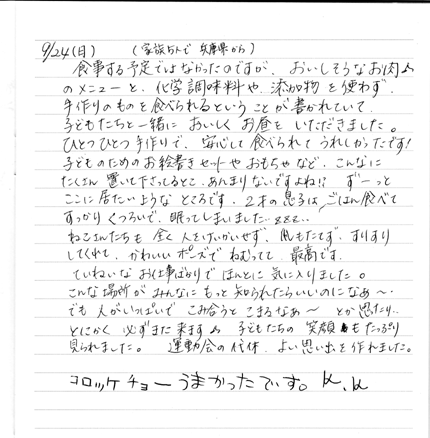 9/24(日) (家族5人で 兵庫県から)
食事する予定ではなかったのですが、おいしそうなお肉
のメニューと、化学調味料や、添加物を使わず、
手作りのものを食べられるということが書かれていて、
子どもたちと一緒に おいしく お昼を いただきました。
ひとつひとつ手作りで、安心して食べられて うれしかったです!
子どものためのお絵書きセットやおもちゃなど、こんなに
たくさん置いて下さってるとこ、あんまりないですよね!? ずーっと
ここに居たいような ところです。2才の息子は、ごはん食べて
すっかり くつろいで、眠ってしまいました…zzz…
ねこさんたちも 全く 人をけいかいせず、爪もたてず、すりすり
してくれて、かわいいポーズで ねむってて、最高です。
ていねいな お仕事ばかりで ほんとに 気に入りました。
こんな場所が みんなに もっと 知られたらいいのになあ〜
でも 人がいっぱいで こみ合うと こまるなぁ〜 とか 思ったり…
とにかく 必ずまた来ます 子どもたちの 笑顔もたっぷり
見られました。 運動会の代休、よい思い出を 作れました。
コロッケチョーうまかったです。K.K